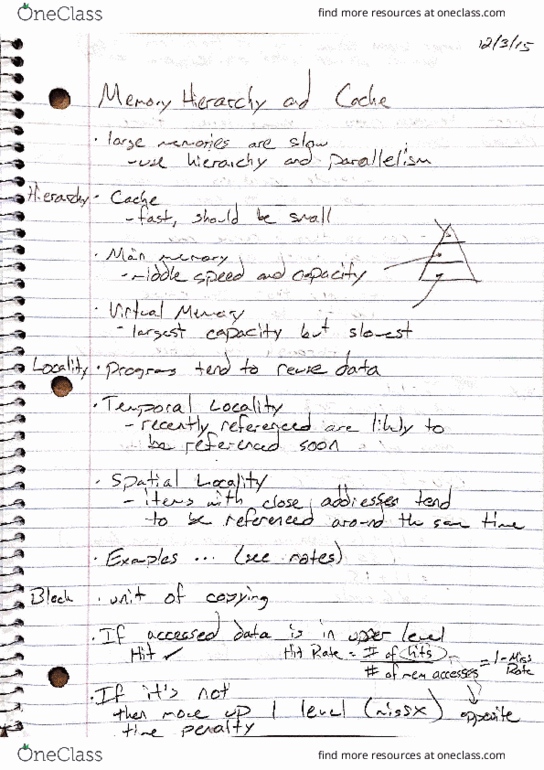 OneClass
find more resources at oneclass.com
12/3/15
Memory Hierarchy and Cache
· large memories are slow
- use hierarchy and parallelism
Hierarchy · Cache
- fast, should be small
· Main memory
- middle speed and capacity
· Virtual Memory
- largest capacity but slowest
Locality · Programs tend to reuse data
· Temporal Locality
- recently referenced are likely to
be referenced soon
· Spatial Locality
- items with close addresses tend
to be referenced around the same time
· Examples ... (see notes)
Block · unit of copying
· If accessed data is in upper level
Hit ✓ Hit Rate = # of hits / # of mem accesses = 1 - Miss Rate
· If it's not
then move up 1 level (miss X) opposite
time penalty
OneClass
find more resources at oneclass.com